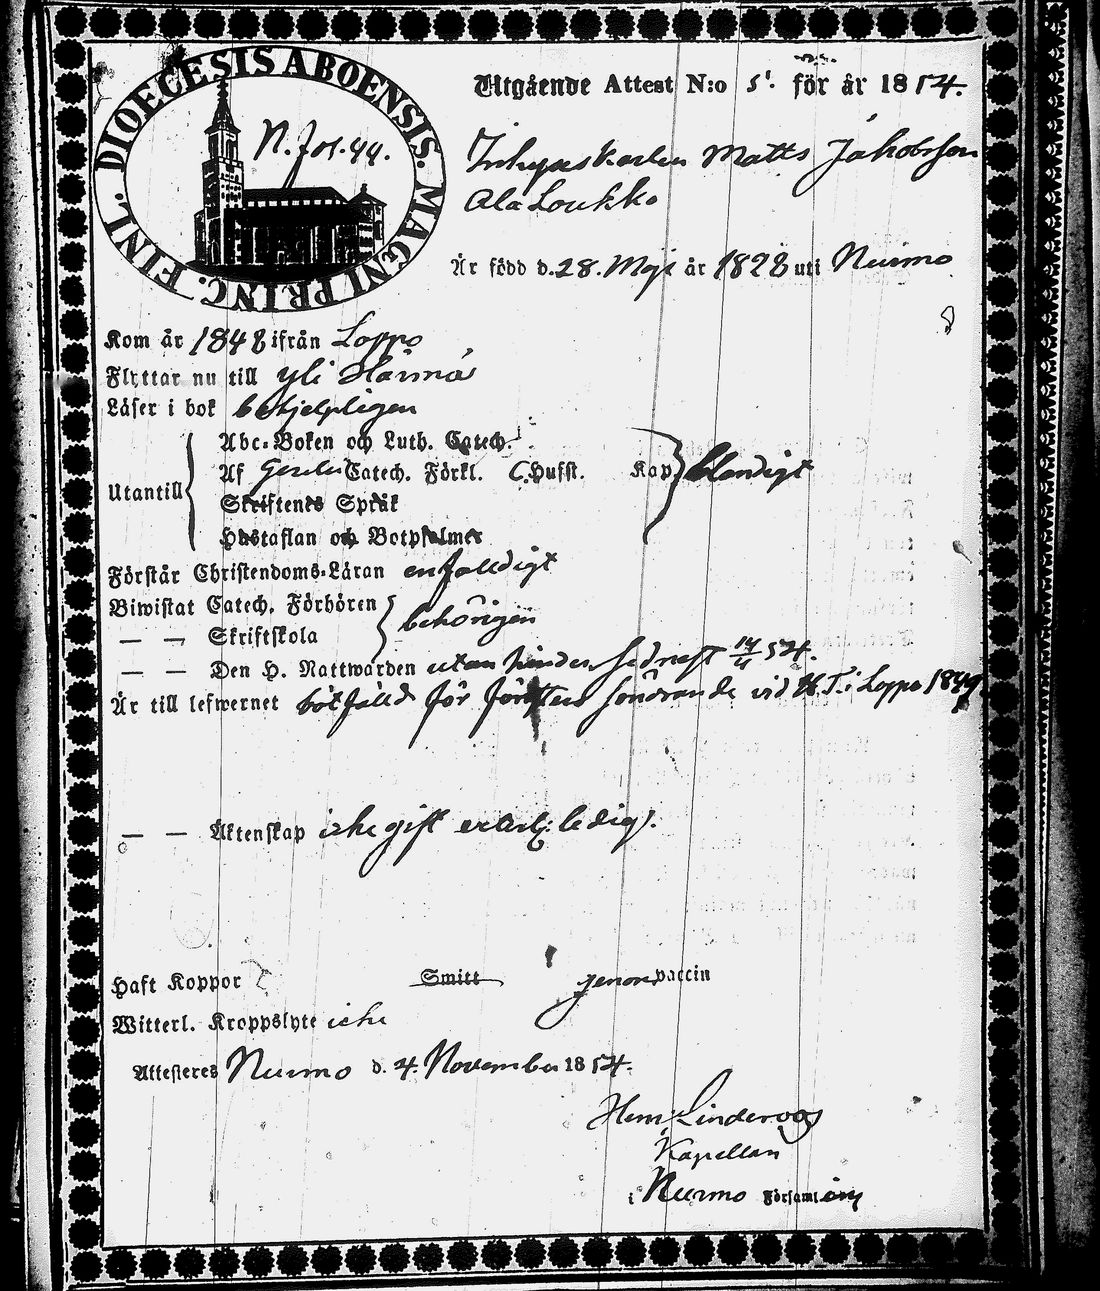 DIOECESIS ABOENSIS. MAGNI PRINC. FINL.
N. fol. 44.
Utgående Attest N:o 51. för år 1854.
Inhyseskarlen Matts Jakobsson
Ala Loukko
Är född d. 28. Maji år 1828 uti Nurmo
Kom år 1848 ifrån Lappo
Flyttar nu till Yli Härmä
Läser i bok behjelpligen
Abc-Boken och Luth. Catech.
Utantill Af Catech. Förkl. C. Hufst. Kap
Skriftenes Språk
Hustaflan och Botpsalmer
Förstår Christendoms-Läran enfaldigt
Biwistat Catech. Förhören
— — Skriftskola behörigen
— — Den H. Nattwarden utan hinder sednast 54.
Är till lefwernet bötfälld för första sönd. vid H. T. i Lappo 1849
— — Äktenskap icke gift ledig.
Haft Koppor Smitt genom vaccin
Witterl. Kroppslyte icke
Attesteras Nurmo d. 4. November 1854.
Hen: Linderoos
Kapellan
i Nurmo Församling